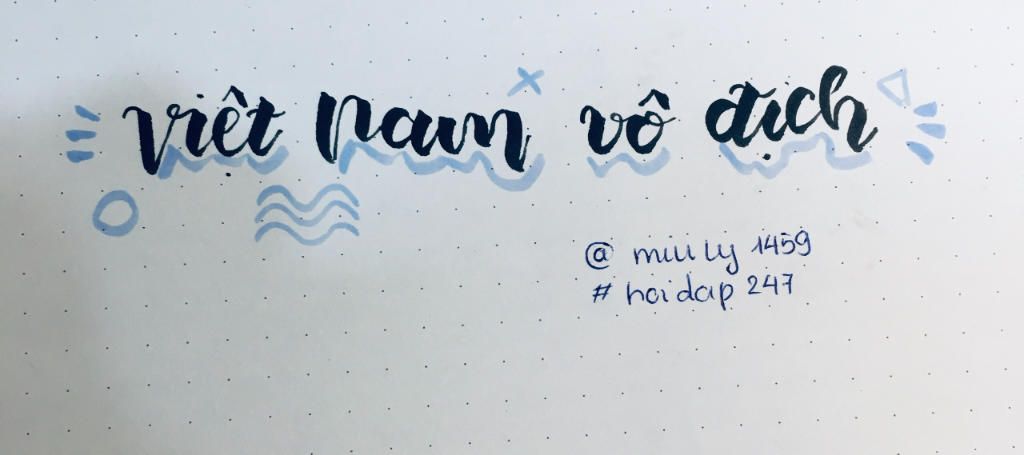 việt nam vô địch
@ miuly 1459
# hoidap 247